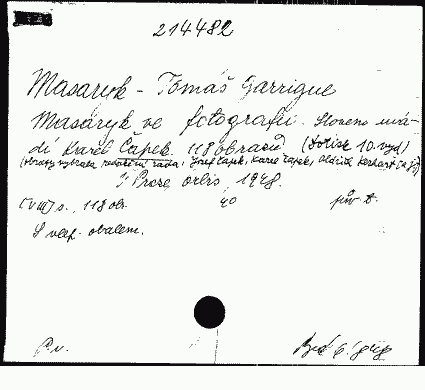 214482
Masaryk - Tomáš Garrigue
Masaryk ve fotografii. Slovem uvá-
dí Karel Čapek. 118 obrazů (Dotisk 10. vyd.)
(obrazy vybrala redakční rada, Josef Čapek, Karel Čapek, Oldřich
V Praze, Orbis, 1948.
[VIII] s., 118 obr. 4° pův. t.
S vlep. obalem.